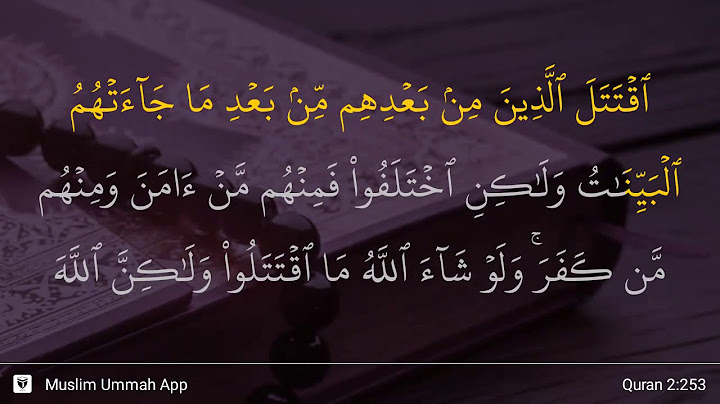 ٱقۡتَتَلَ ٱلَّذِينَ مِنۢ بَعۡدِهِم مِّنۢ بَعۡدِ مَا جَآءَتۡهُمُ
ٱلۡبَيِّنَٰتُ وَلَٰكِنِ ٱخۡتَلَفُواْ فَمِنۡهُم مَّنۡ ءَامَنَ وَمِنۡهُم
مَّن كَفَرَۚ وَلَوۡ شَآءَ ٱللَّهُ مَا ٱقۡتَتَلُواْ وَلَٰكِنَّ ٱللَّهَ
Muslim Ummah App
Quran 2:253